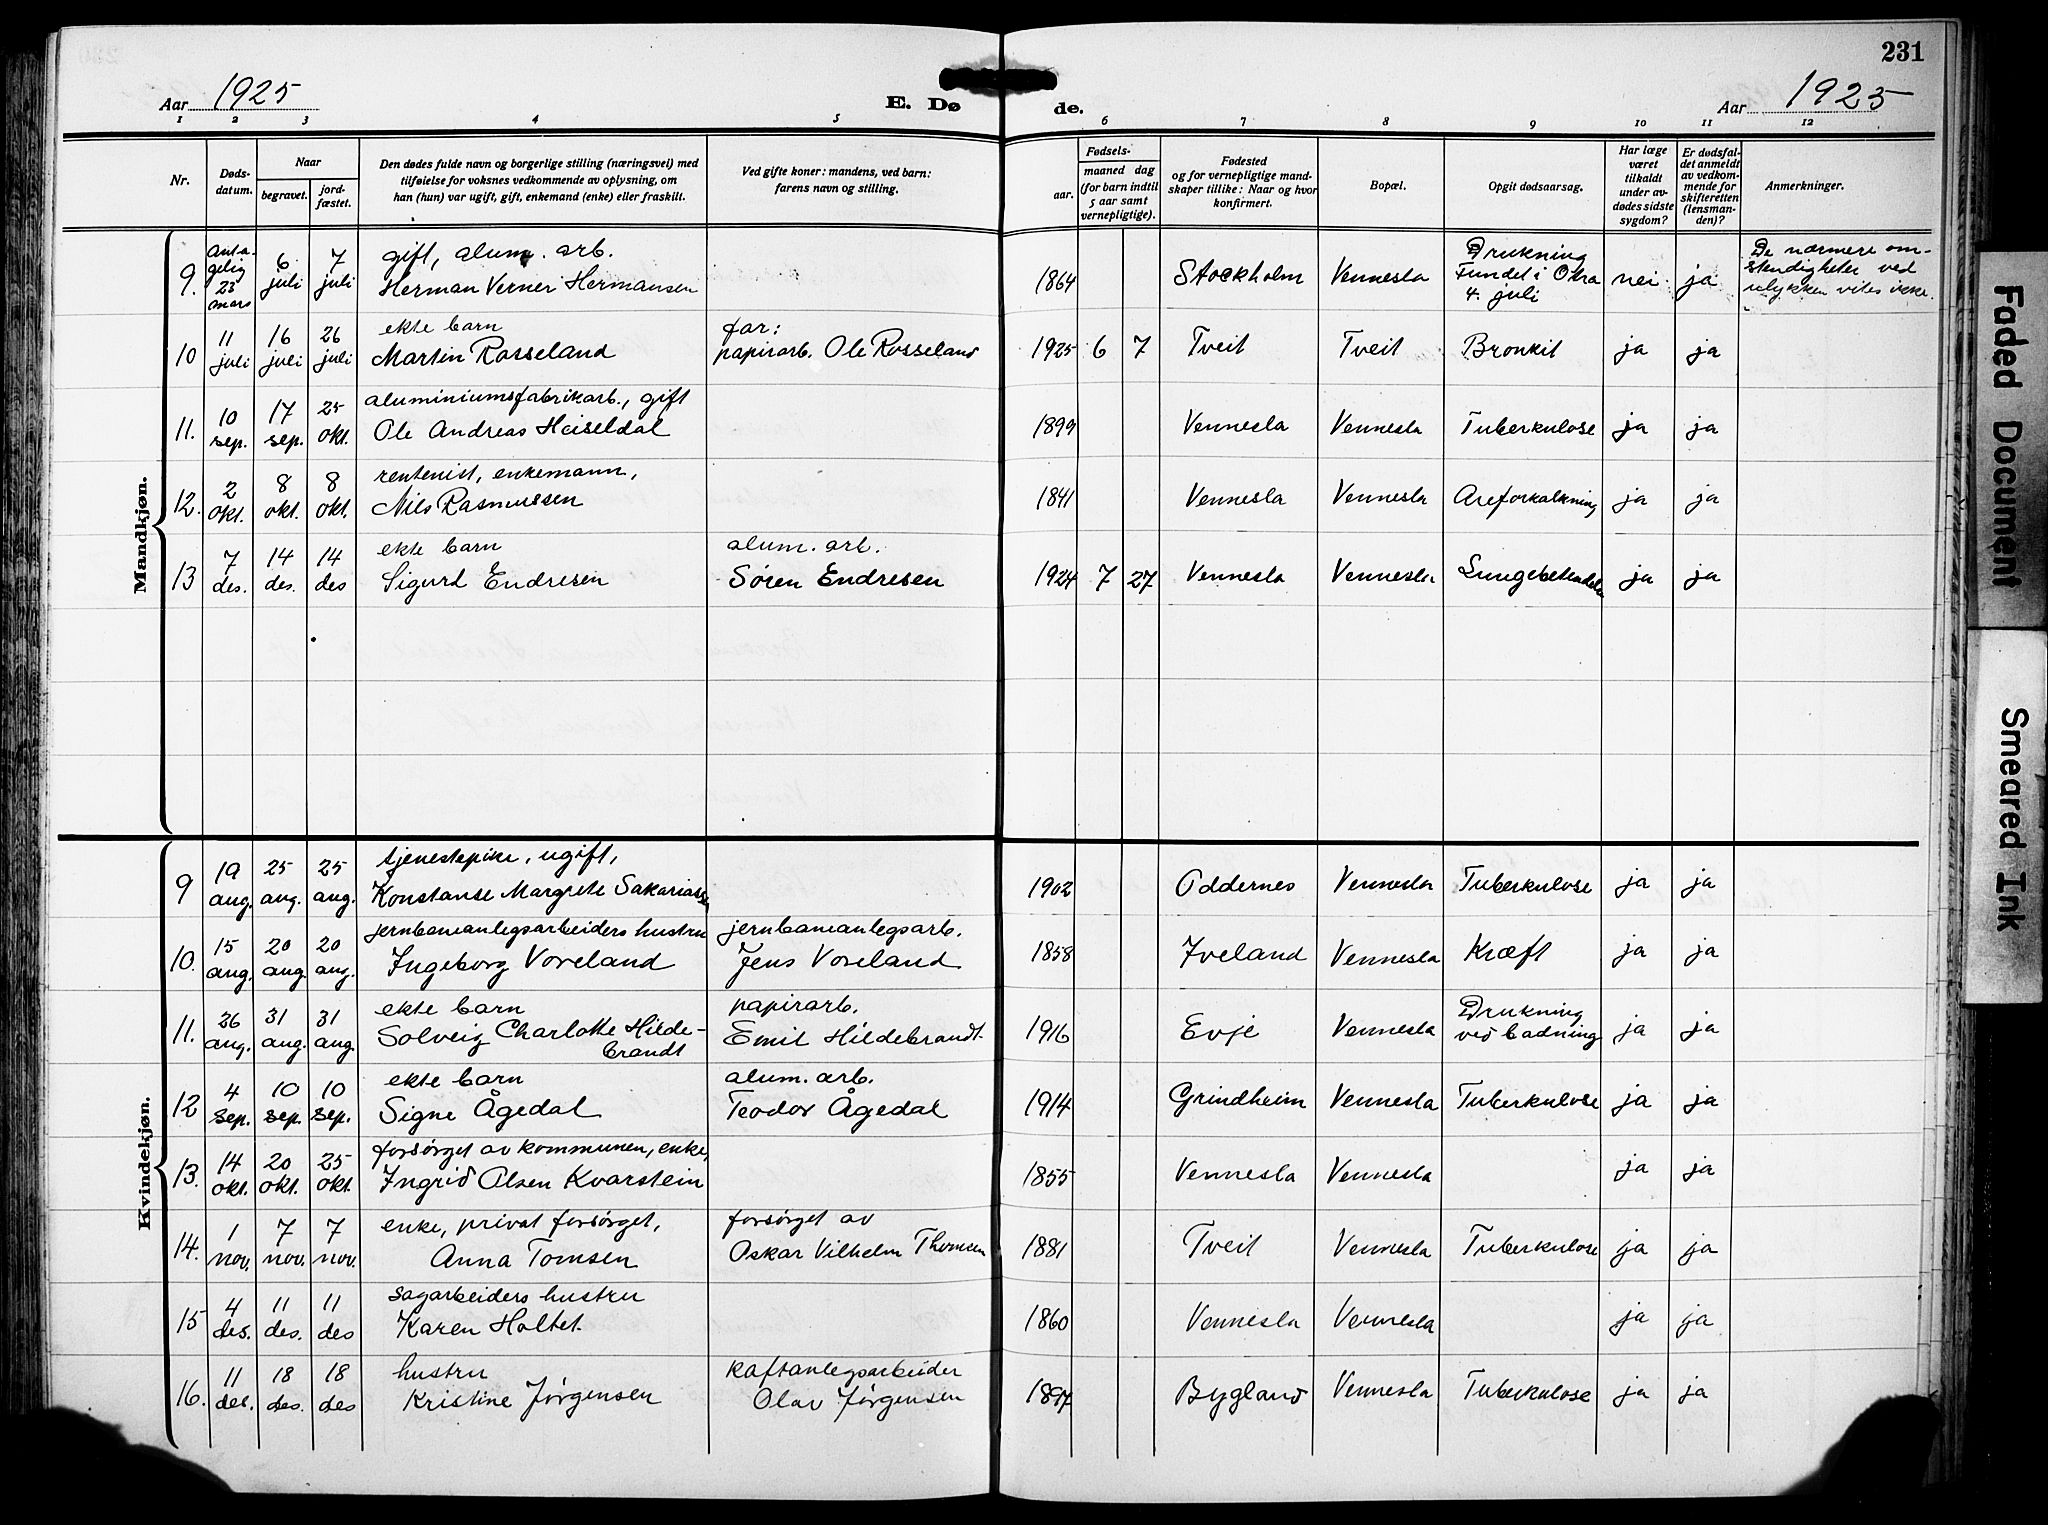 231
Aar 1925
E. Dø de.
Aar 1925
1 2 3 4 5 6 7 8 9 10 11 12
Nr.
Døds-
datum.
Naar
begravet.
jord-
fæstet.
Den dødes fulde navn og borgerlige stilling (næringsvei) med
tilføielse for voksnes vedkommende av oplysning, om
han (hun) var ugift, gift, enkemand (enke) eller fraskilt.
Ved gifte koner: mandens, ved barn:
farens navn og stilling.
Fødsels-
aar.
maaned dag
(for barn indtil
5 aar samt
vernepligtige).
Fødested
og for vernepligtige mand-
skaper tillike: Naar og hvor
konfirmert.
Bopæl.
Opgit dødsaarsag.
Har læge
været
tilkaldt
under av-
dødes sidste
sygdom?
Er dødsfal-
det anmeldt
av vedkom-
mende for
skifteretten
(lensman-
den)?
Anmerkninger.
Mandkjøn.
9. Anta-
gelig
23
mars
6
juli
7
juli
gift, alum. arb.
Herman Verner Hermansen
1864 Stockholm Vennesla
Drukning
Fundet i Otra
4. juli
nei ja
De nærmere om-
stendigheter ved
ulykken vites ikke.
10
11
juli
16
juli
26
juli
ekte barn
Martin Rosseland
far:
papirarb. Ole Rosseland
1925 6 7 Tveit Tveit Bronkit ja ja
11.
10
sep.
17
sep.
25
okt.
aluminiumsfabrikarb., gift
Ole Andreas Heiseldal
1899 Vennesla Vennesla Tuberkulose ja ja
12.
2
okt.
8
okt.
8
okt.
rentenist, enkemann,
Nils Rasmussen
1841 Vennesla Vennesla Areforkalkning ja ja
13
7
des.
14
des.
14
des
ekte barn
Sigurd Endresen
alum. arb.
Søren Endresen
1924 7 27 Vennesla Vennesla ja ja
Kvindekjøn.
9
19
aug.
25
aug.
25
aug.
tjenestepike, ugift,
Konstanse Margrete Sakariassen
1902 Oddernes Vennesla Tuberkulose ja ja
10.
15
aug.
20
aug.
20
aug.
jernbaneanlegsarbeiders hustru
Ingeborg Voreland
jernbaneanlegsarb.
Jens Voreland
1858 Iveland Vennesla Kræft ja ja
11.
26
aug.
31
aug.
31
aug
ekte barn
Solveig Charlotte Hilde-
brandt
papirarb.
Emil Hildebrandt.
1916 Evje Vennesla
Drukning
ved badning
ja ja
12
4
sep.
10
sep.
10
sep.
ekte barn
Signe Ågedal
alum. arb.
Teodor Ågedal
1914 Grindheim Vennesla Tuberkulose ja ja
13.
14
okt.
20
okt.
25
okt.
forsørget av kommunen, enke,
Ingrid Olsen Kvarstein
1855 Vennesla Vennesla ja ja
14.
1
nov.
7
nov.
7
nov.
enke, privat forsørget,
Anna Tomsen
forsørget av
Oskar Vilhelm Thomsen
1881 Tveit Vennesla Tuberkulose ja ja
15
4
des.
11
des.
11
des
sagarbeiders hustru
Karen Holtet.
1860 Vennesla Vennesla ja ja
16.
11
des.
18
des.
18
des
hustru
Kristine Jørgensen
kaftanlegsarbeider
Olav Jørgensen
1897 Bygland Vennesla Tuberkulose ja ja
Faded Document
Smeared Ink